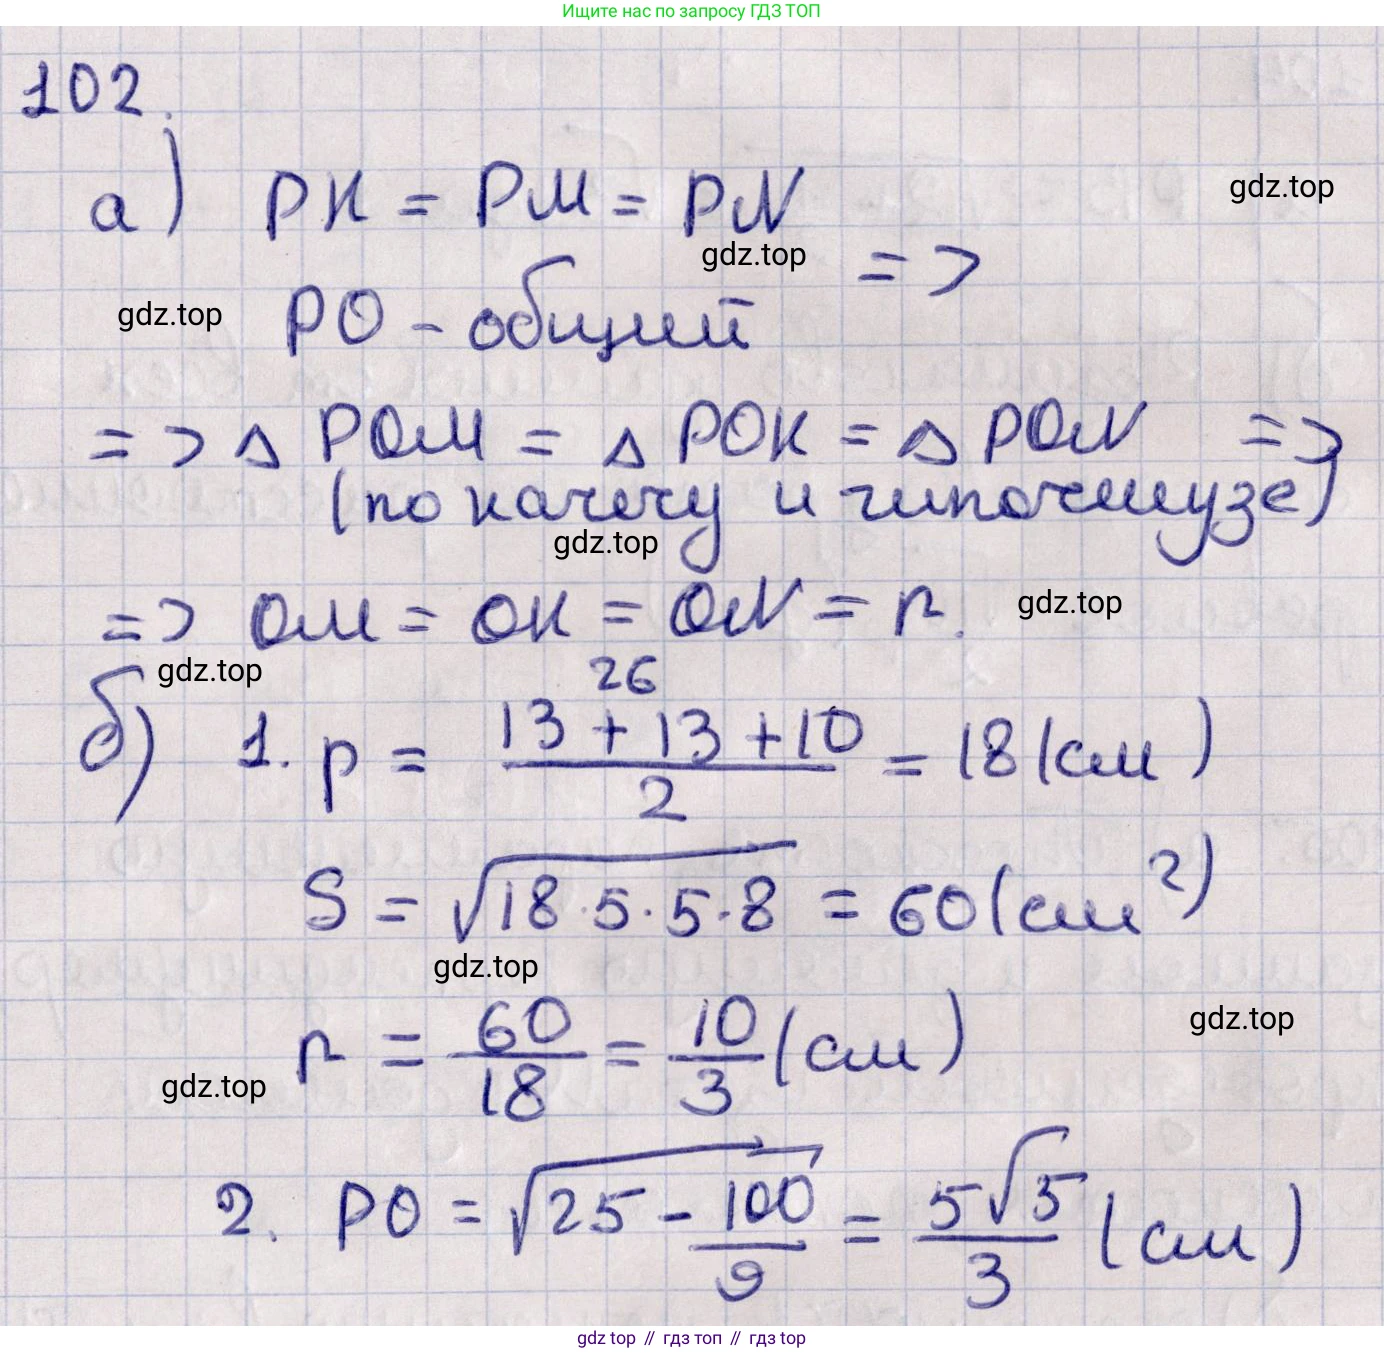 Ищите нас по запросу ГДЗ ТОП
102.
а) PK = PM = PN
gdz.top
gdz.top
=>
gdz.top
PO - общий
=> △ POM = △ POK = △ PON =>
(по катету и гипотенузе)
gdz.top
=> OM = OK = ON = r.
gdz.top
gdz.top
26
б) 1. p = \frac{13 + 13 + 10}{2} = 18 (см)
S = \sqrt{18 · 5 · 5 · 8} = 60 (см²)
gdz.top
r = \frac{60}{18} = \frac{10}{3} (см)
gdz.top
gdz.top
2. PO = \sqrt{25 - \frac{100}{9}} = \frac{5\sqrt{5}}{3} (см)
gdz top // гдз топ // гдз top